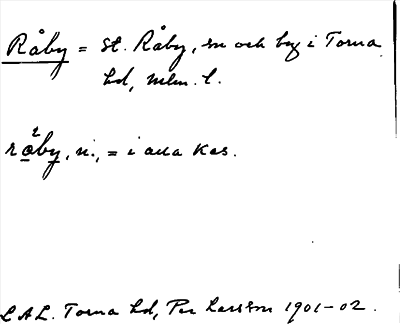 Råby = St. Råby, sn och by i Torna
hd, Mlm. l.
råby, n., = i alla kas.
LAL. Torna hd, Per Larsson 1901-02.